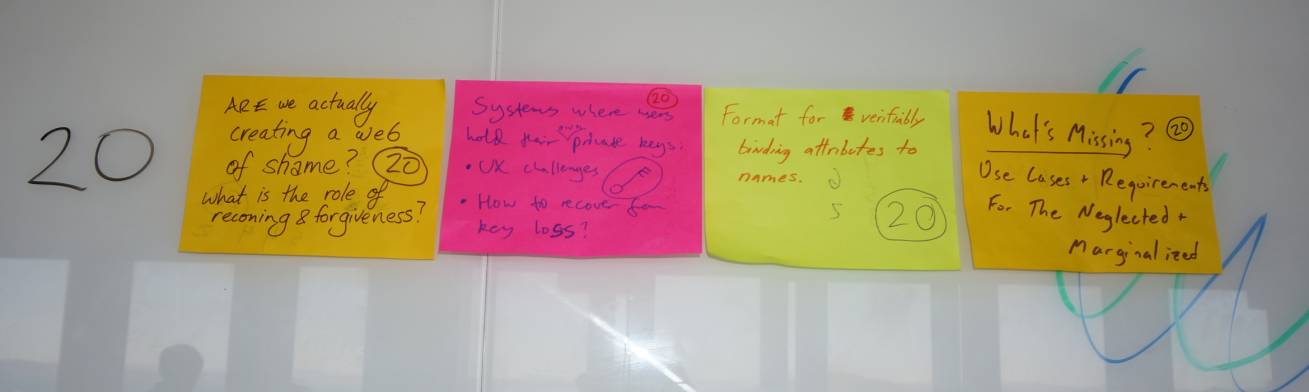 20
ARE we actually
creating a web
of shame? 20
what is the role of
reconing & forgiveness?
20
Systems where users
hold their own private keys.
• UX challenges
• How to recover from
key loss?
Format for verifiably
binding attributes to
names.
20
What's Missing? 20
Use Cases + Requirements
For The Neglected +
Marginalized